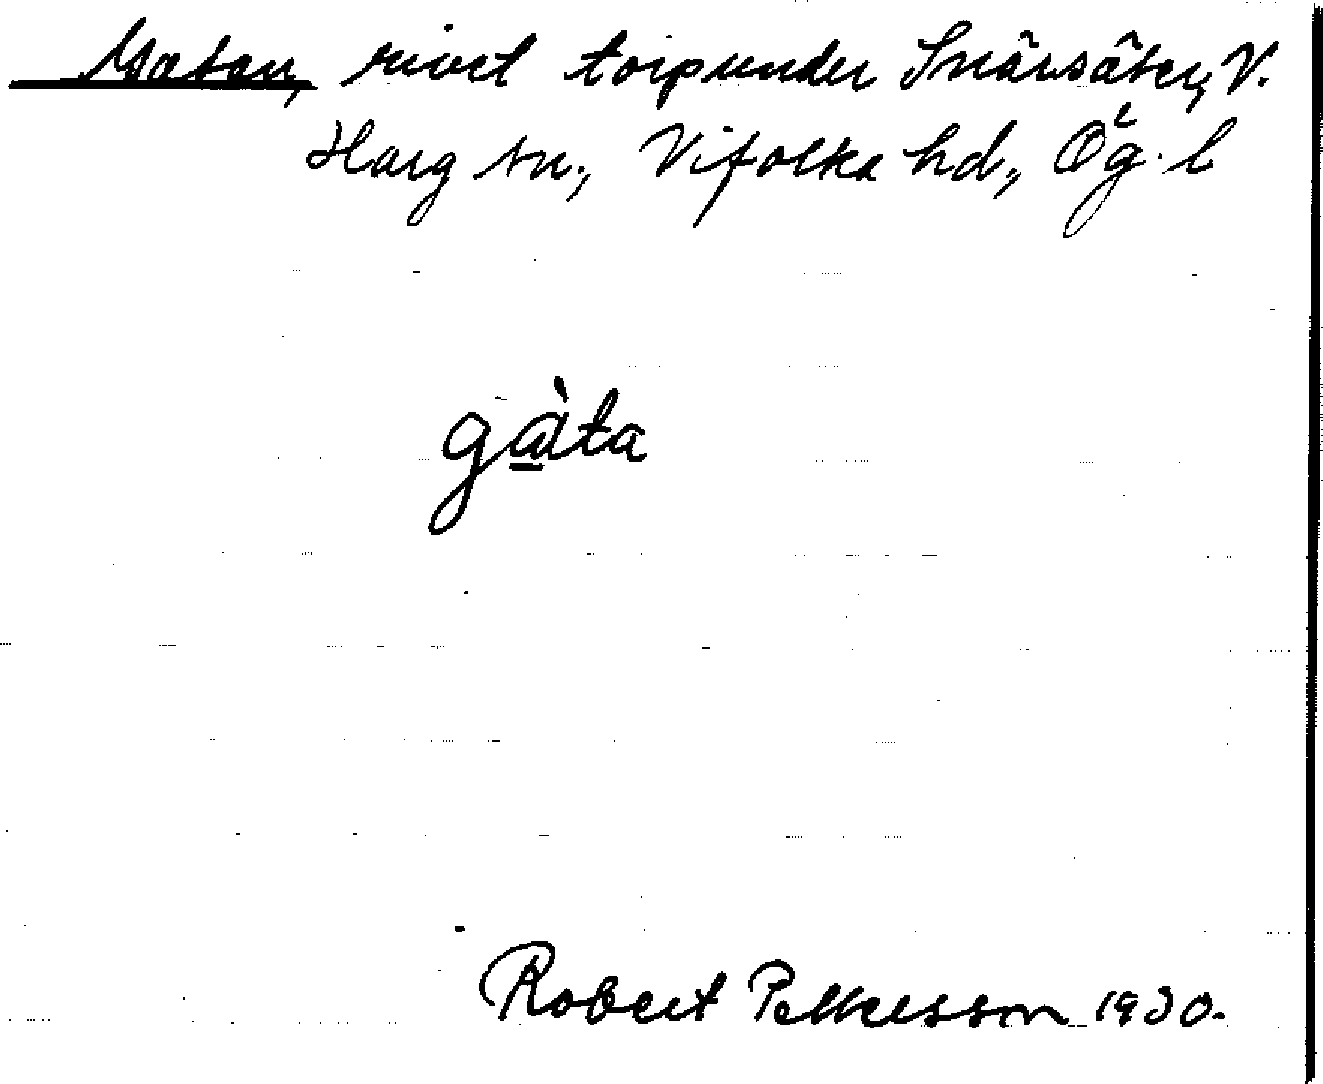 Gatan, rivet torp under Snärsäter, V.
Harg sn., Vifolka hd., Ög. l
gàta
Robert Pettersson 1930.